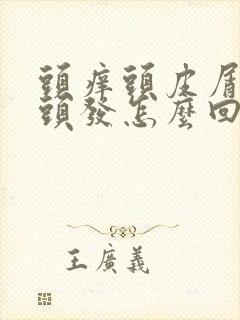 頭癢頭皮屑
頭發怎麼回
王廣義